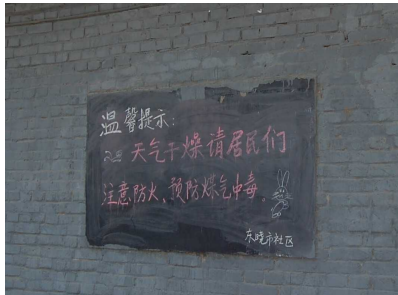 温馨提示:
天气干燥请居民们
注意防火、预防煤气中毒。
东晓市社区